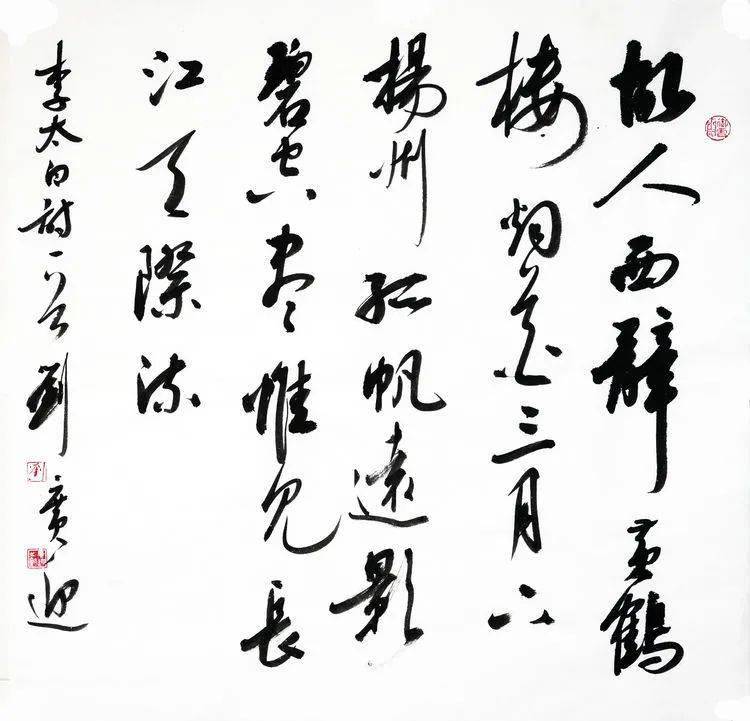 故人西辞黄鹤
楼烟花三月下
揚州孤帆遠影
碧空尽惟见長
江天際流
李太白詩一首劉廣迎